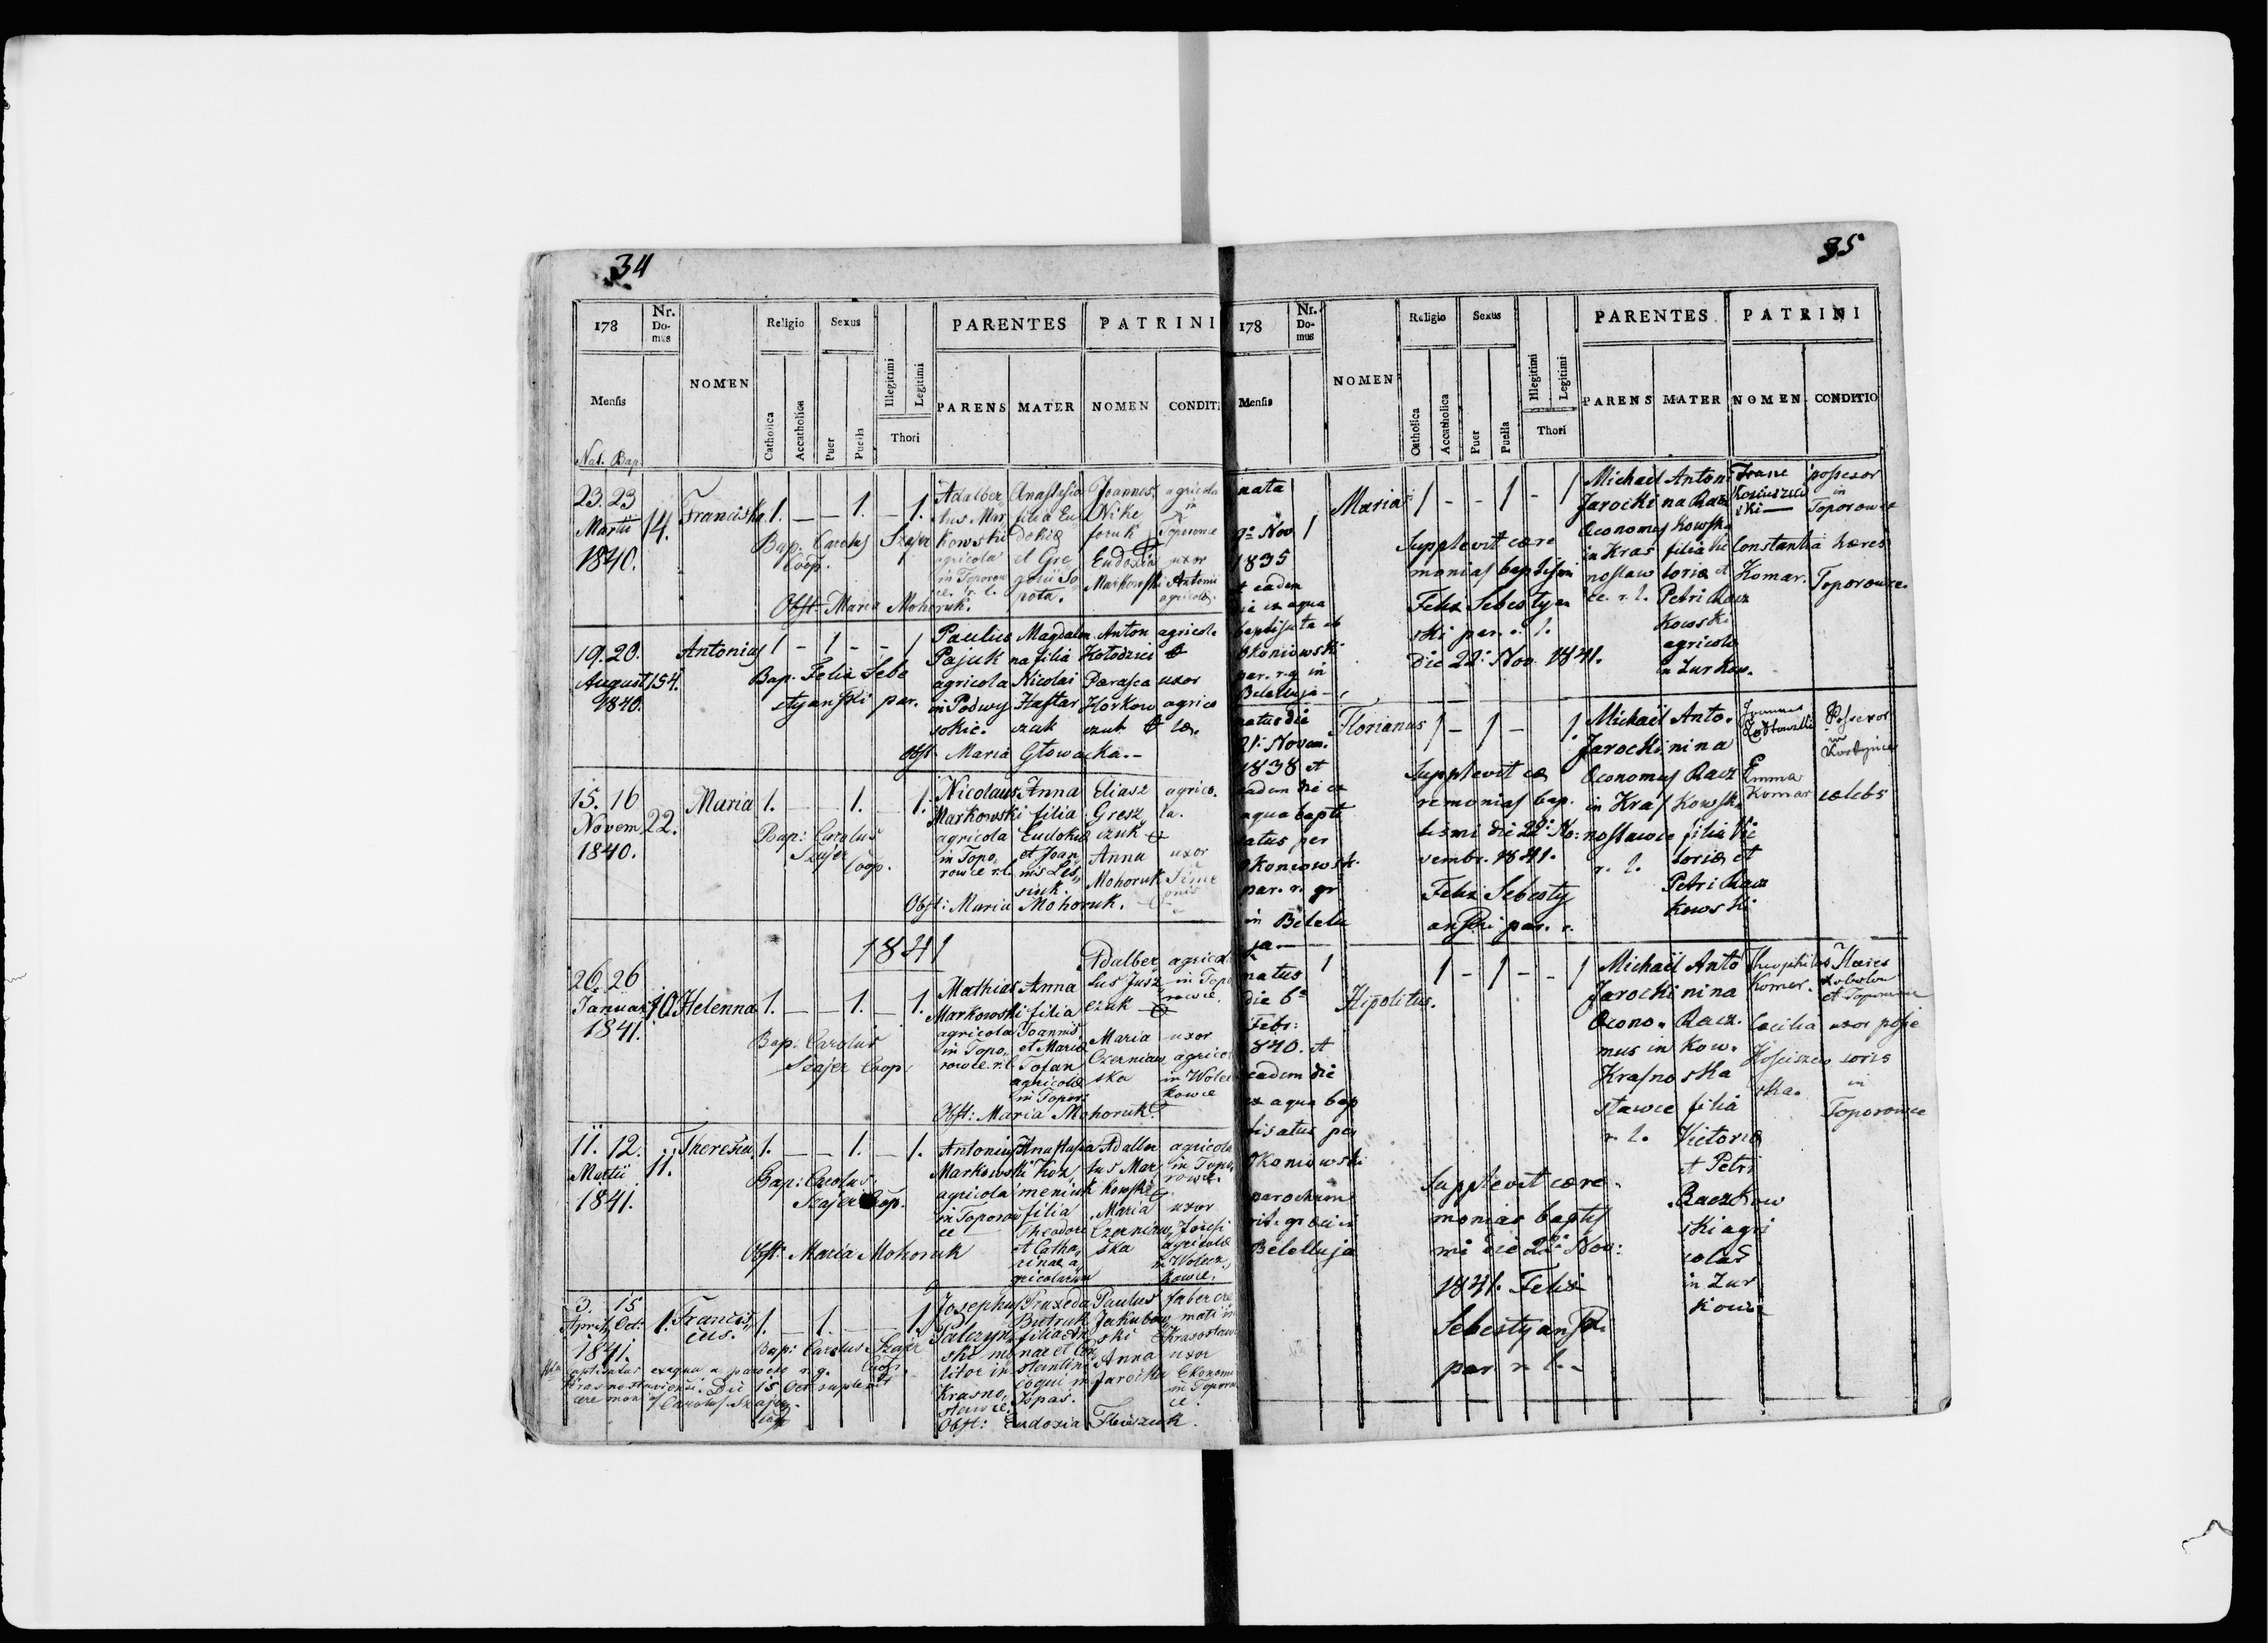 34
178
Nr. Domus
NOMEN
Religio
Sexus
Illegitimi
Legitimi
PARENTES
PATRINI
Mensis
Catholica
Accatholica
Puer
Puella
Thori
PARENS
MATER
NOMEN
CONDITI
Nat. Bap.
23. 23
Martii
1840.
14.
Franciska
1. — — 1. — 1.
Bap. Carolus Szajer
Coop.
Obst. Maria Mohoruk.
Adalber
tus Mar
kowski
agricola
in Toporow
ce. r. l.
Anastasia
filia Eu
dokiæ
et Gre
gorii So
pota.
Joannes
Nike
foruk
Eudoxia
Markowski
agricola
in
Toporowce
uxor
Antonii
agricolæ.
19. 20.
August
1840.
154.
Antonius
1 - 1 - - 1
Bap. Felix Sebe
styanski par.
Paulus
Pajuk
agricola
in Podwy
sokie.
Magdale
na filia
Nicolai
Hastar
czuk
Anton
Kolodziei
Parasca
Korkow
czuk
agricola
uxor
agrico
læ.
Obst. Maria Głowacka.-
15. 16
Novem.
1840.
22.
Maria
1. — — 1. — 1.
Bap: Carolus
Szajer
Coop.
Nicolaus
Markowski
agricola
in Topo,
rowce r.l.
Anna
filia
Eudokiæ
et Joan,
nis Les,
siuk.
Eliasz
Gresz
czuk
Anna
Mohoruk
agrico.
la.
uxor
Sime
onis
Obst: Maria Mohoruk.
1841
26. 26
Januar
1841.
10.
Helenna
1. — — 1. — 1.
Bap: Carolus
Szajer Coop.
Mathias
Markowski
agricola
in Topo,
rowce. r.l.
Anna
filia
Joannis
et Mariæ
Tofan
agricolæ
in Topor:
Adalber
tus Jusz
czuk
Maria
Czerniaw
ska
agricola
in Topo
rowce.
uxor
agricol
in Wolcz
kowce
Obst: Maria Mohoruk.
11. 12.
Martii
1841.
11.
Theresia
1. — — 1. — 1.
Bap: Carolus
Szajer Coop.
Obst: Maria Mohoruk
Antonius
Markowski
agricola
in Toporow
ce
Anastasia
Koz,
meniuk
filia
Theodori
et Catha,
rinae a,
gricolarum
Adalber
tus Mar
kowski
Maria
Czerniaw,
ska
agricola
in Topo,
rowce.
uxor
Josefi
agricolæ
in Wolcz,
kowce.
3. 15
April, Oct:
1841.
1.
Francis,
cus.
1. — 1. — — 1.
Bap: Carolus Szajer
Coop.
Josephus
Salczyn
ski mo
litor in
Krasno,
stawce.
Praxeda
Butruk
filia An
nae et Con
stantini
coqui in
Ispas.
Paulus
Jakubow
ski
Anna
Jarocka
faber cre
mati in
Krasnostaw
uxor
Ekonomi
in Toporow
ce.
Obst: Eudoxia Fleiszuk.
35
178
Nr. Domus
NOMEN
Religio
Sexus
Illegitimi
Legitimi
PARENTES
PATRINI
Mensis
Catholica
Accatholica
Puer
Puella
Thori
PARENS
MATER
NOMEN
CONDITIO
nata
9ª Nov
1835
et eadem
die ex aqua
baptisata ab
Okoniowski
par. r.g. in
Belelluja-
Maria
1 - - 1 - 1
Supplevit cære
monias baptismi
Felix Sebestyan
ski par. r. l.
Die 22ª Nov. 1841.
Michael
Jarocki
Oconomus
in Kras
nostaw
ce. r. l.
Antoni
na Racz
kowska
filia Vic
toriæ et
Petri Racz
kowski
agricola
in Zurkow.
Franc
Kosciuszew
ski —
Constantia
Komar.
possesor
in
Toporowce
hæres
Toporowce.
natus die
21ª Novem.
1838 et
eadem die ex
aqua bapti
satus per
Okoniowski
par. r. gr
in Belelu
ja —
Florianus
1 - 1 - 1.
Supplevit cæ
remonias bap.
tismi die 22ª No:
vembr. 1841.
Felix Sebesty
anski par. r.
Michail
Jarocki
Oconomus
in Kras
nostawce
r. l.
Anto.
nina
Racz
kowska
filia Vic
toriæ et
Petri Racz
kowski
Joannes
Emma
Komar
Possesor
in
cælebs
natus
die 6ª
Febr:
840. et
eadem die
ex aqua bap
tisatus per
Okoniowski
parochum
rit. græci in
Belelluja
Hipolitus.
1 - 1 - - 1
Supplevit cære.
monias baptis
mi die 22ª Nov:
1841. Felix
Sebestyanski
par r. l. -
Michail
Jarocki
Ocono.
mus in
Krasno
stawce
r. l.
Anto
nina
Racz.
kow.
ska
filia
Victoriæ
et Petri
Raczkow
ski agri
colæ
in Zur
kow
Theophilus
Komar.
Cæcilia
Kosciszew
ska.
Hæres
et Toporowce
uxor posse
soris
in
Toporowce